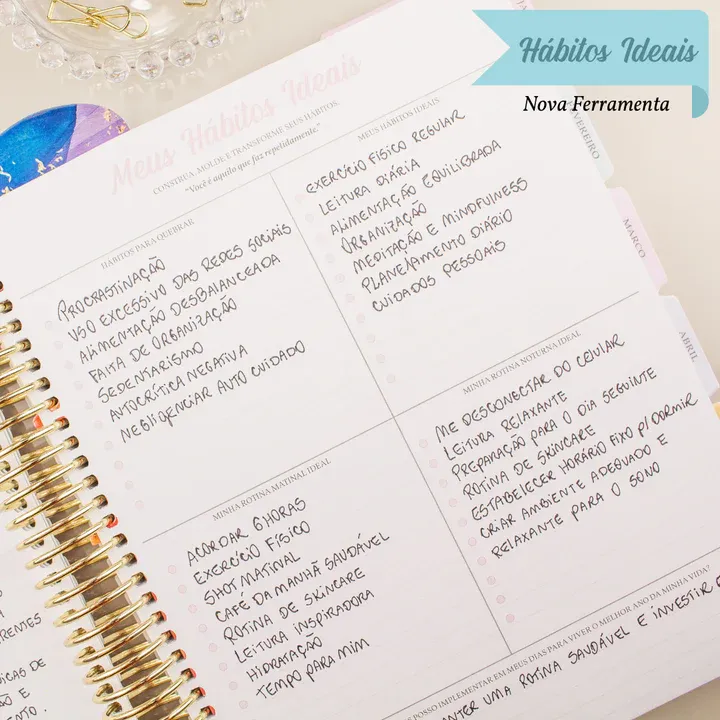 Hábitos Ideais
Nova Ferramenta
Meus Hábitos Ideais
CONSTRUA, MOLDE E TRANSFORME SEUS HÁBITOS.
"Você é aquilo que faz repetidamente."
HÁBITOS PARA QUEBRAR
PROCRASTINAÇÃO
USO EXCESSIVO DAS REDES SOCIAIS
ALIMENTAÇÃO DESBALANCEADA
FALTA DE ORGANIZAÇÃO
SEDENTARISMO
AUTOCRÍTICA NEGATIVA
NEGLIGENCIAR AUTO CUIDADO
MEUS HÁBITOS IDEAIS
EXERCÍCIO FÍSICO REGULAR
LEITURA DIÁRIA
ALIMENTAÇÃO EQUILIBRADA
ORGANIZAÇÃO
MEDITAÇÃO E MINDFULNESS
PLANEJAMENTO DIÁRIO
CUIDADOS PESSOAIS
MINHA ROTINA MATINAL IDEAL
ACORDAR 6HORAS
EXERCÍCIO FÍSICO
SHOT MATINAL
CAFÉ DA MANHÃ SAUDÁVEL
ROTINA DE SKINCARE
LEITURA INSPIRADORA
HIDRATAÇÃO
TEMPO PARA MIM
MINHA ROTINA NOTURNA IDEAL
ME DESCONECTAR DO CELULAR
LEITURA RELAXANTE
PREPARAÇÃO PARA O DIA SEGUINTE
ROTINA DE SKINCARE
ESTABELECER HORÁRIO FIXO P/ DORMIR
CRIAR AMBIENTE ADEQUADO E
RELAXANTE PARA O SONO
POSSO IMPLEMENTAR EM MEUS DIAS PARA VIVER O MELHOR ANO DA MINHA VIDA?
UMA ROTINA SAUDÁVEL E INVESTIR
FEVEREIRO
MARÇO
ABRIL
DICAS DE